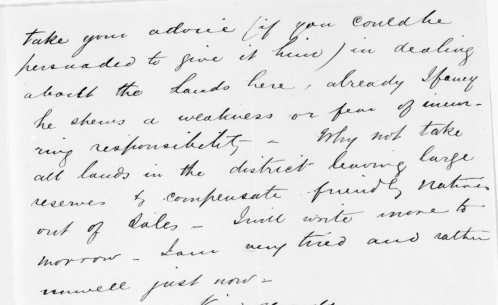 take your advice (if you could be
persuaded to give it him) in dealing
about the Lands here, already I fancy
he shews a weakness or fear of incur-
ring responsibility - Why not take
all lands in the district leaving large
reserves & compensate friendly natives
out of Sales - I will write more to
morrow - I am very tired and rather
unwell just now -